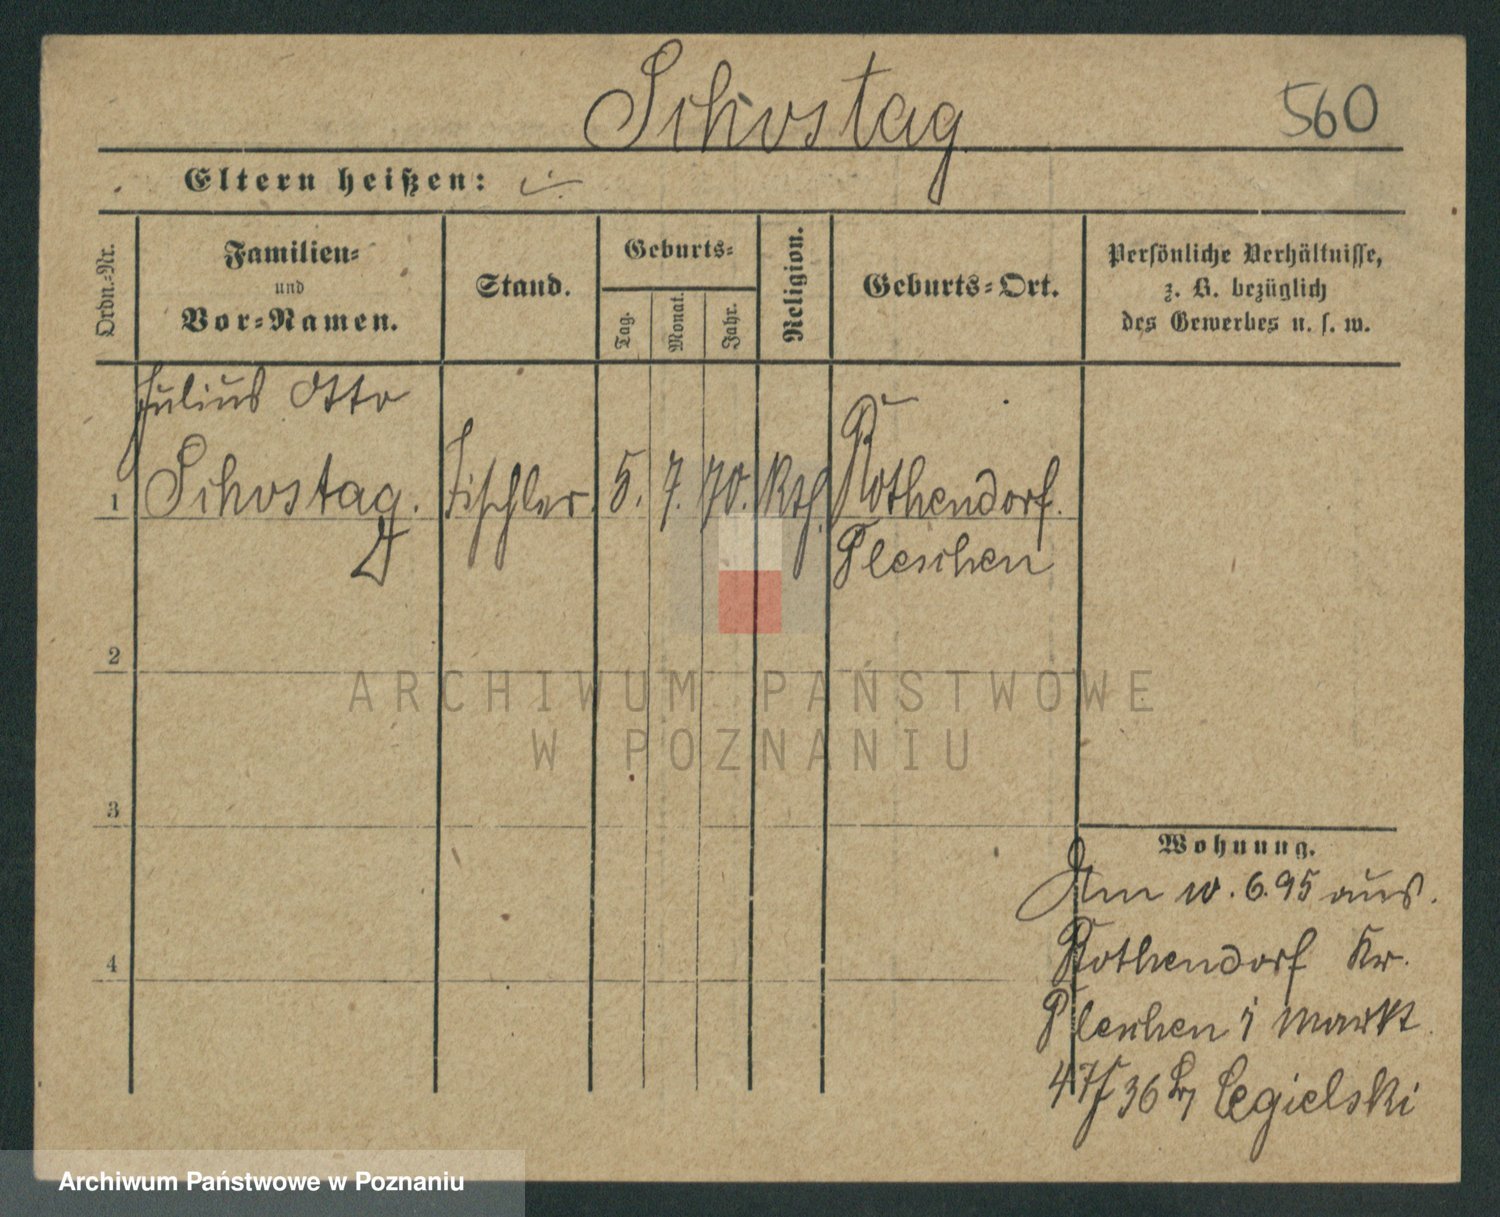 Schostag
560
Eltern heißen:
Ordn.-Nr.
Familien-
und
Vor-Namen.
Stand.
Geburts-
Tag.
Monat.
Jahr.
Religion.
Geburts-Ort.
Persönliche Verhältnisse,
z. B. bezüglich
des Gewerbes u. s. w.
Julius Otto
1 Schostag. Tischler 5. 7. 70. Kth. Rothendorf.
Pleschen
2
3
4
ARCHIWUM PAŃSTWOWE
W POZNANIU
Wohnung.
Am 10.6.95 aus.
Rothendorf Kr.
Pleschen Markt
47/36 Cegielski
Archiwum Państwowe w Poznaniu